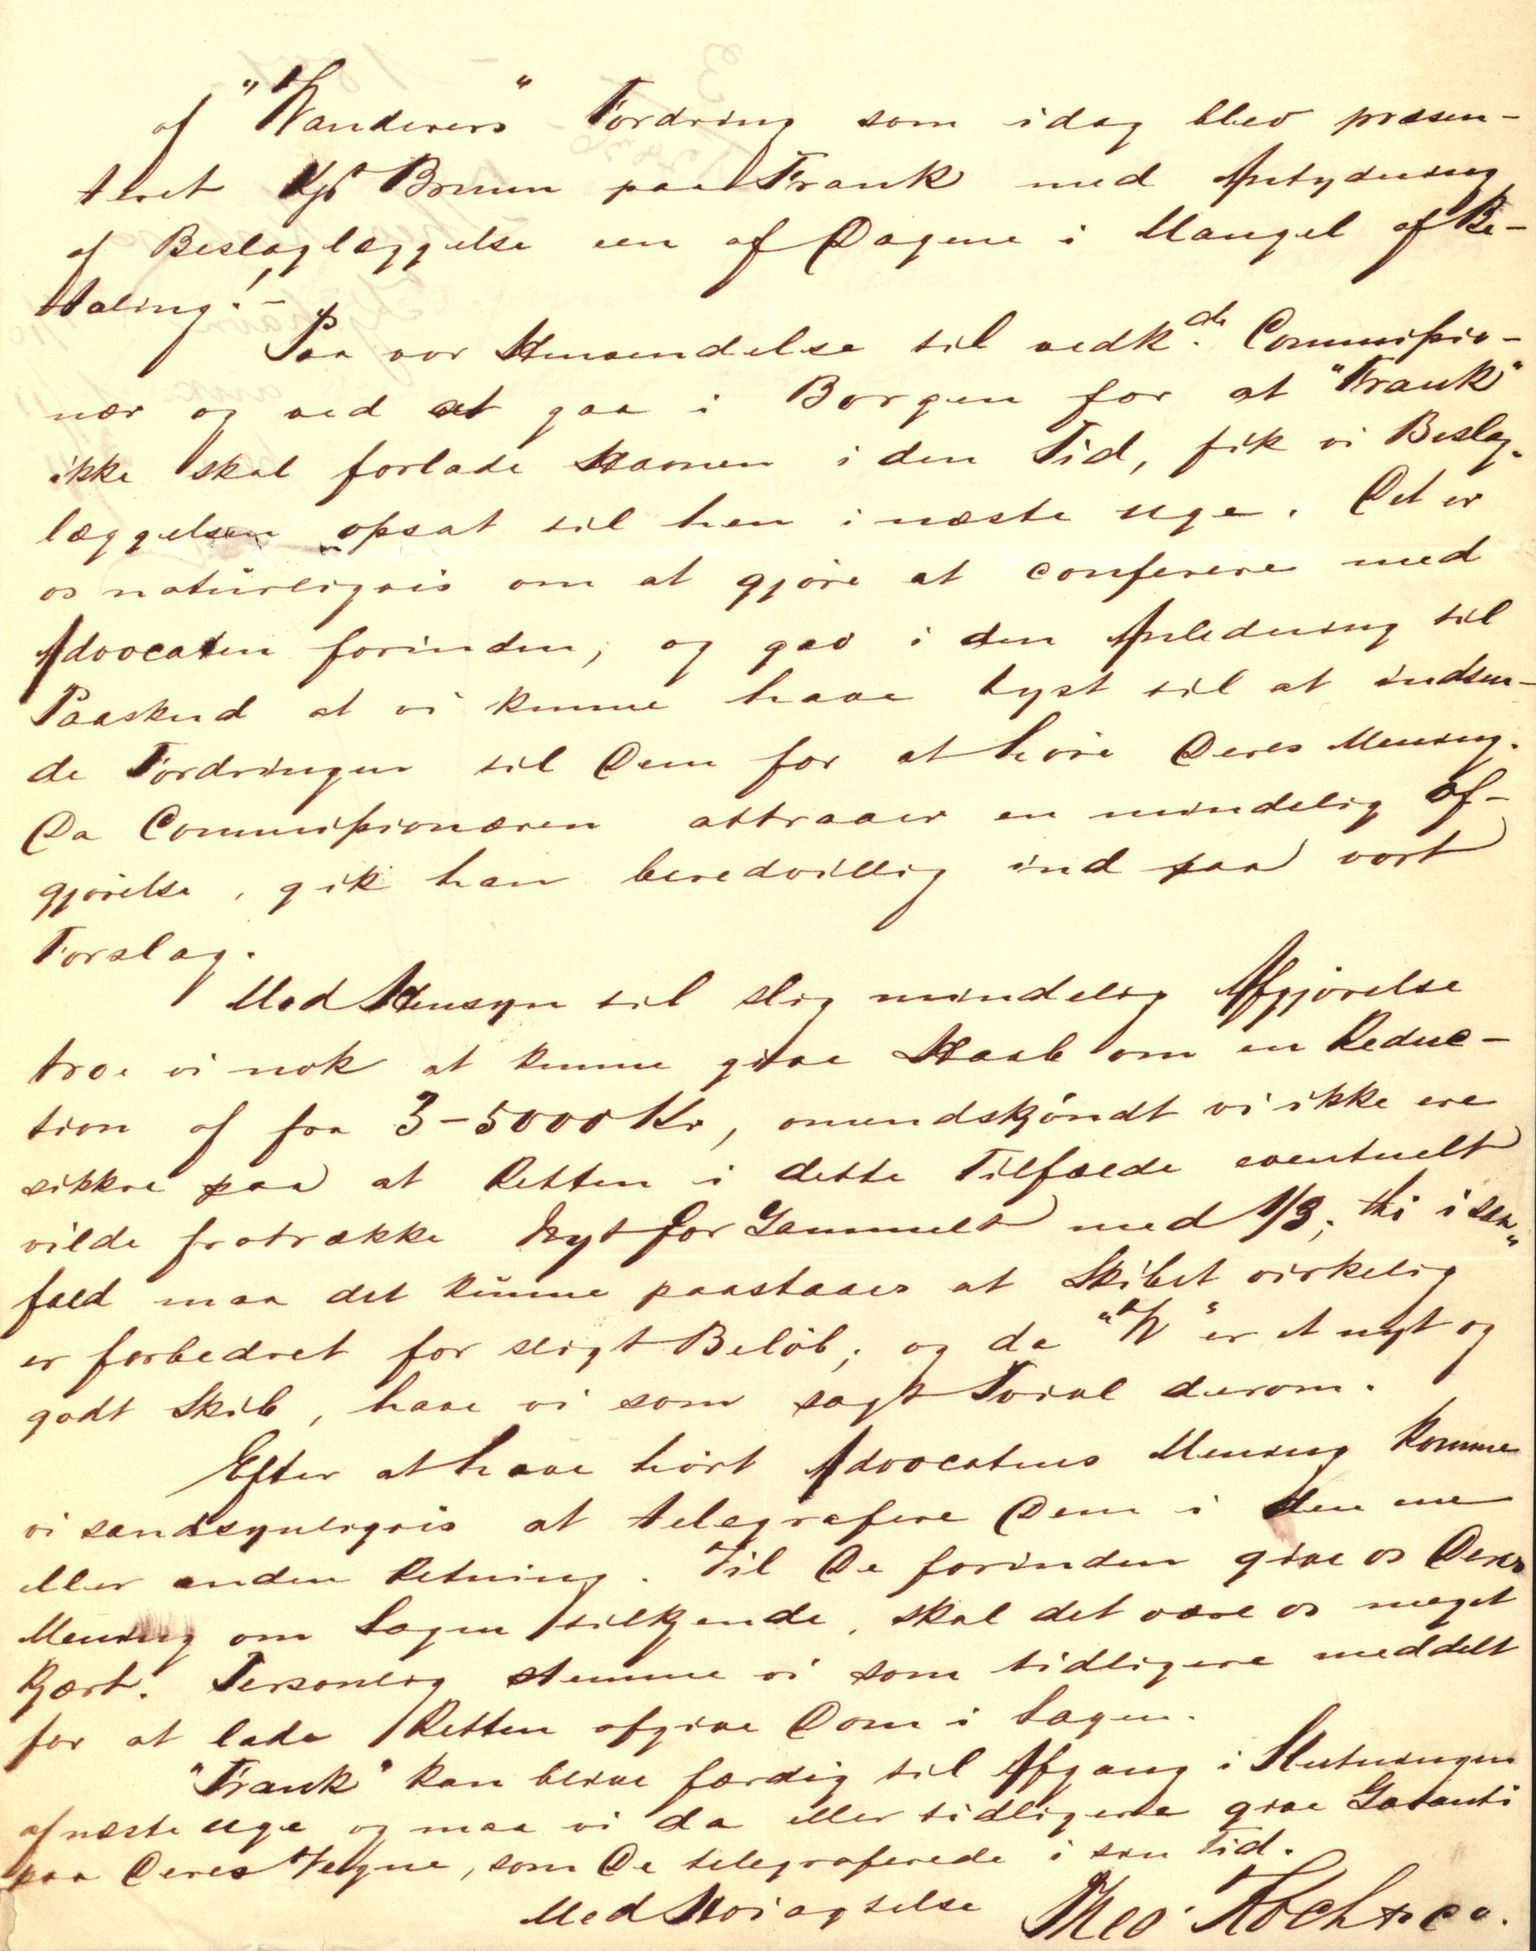 af "Wanderers" Fordring som idag blev præsen-
teret Kpt Bruun paa Frank med Antydning
af Beslaglæggelse een af Dagene i Mangel af Be-
taling! -
Paa vor Henvendelse til vedkde. Commissio-
nær og ved at gaa i Borgen for at "Frank"
ikke skal forlade Havnen i den Tid, fik vi Beslag-
læggelsen opsat til hen i næste Uge. Det er
os naturligvis om at gjøre at conferere med
Advocaten forinden, og gav i den Anledning til
Paaskud at vi kunne have Lyst til at indsen-
de Fordringen til Dem for at høre Deres Mening.
Da Commissionæren attraaer en mindelig Af-
gjørelse, gik han beredvillig ind paa vort
Forslag.
Med Hensyn til slig mindelig Afgjørelse
troe vi nok at kunne give Haab om en Reduc-
tion af fra 3-5000 Kr, omendskjøndt vi ikke ere
sikkre paa at Retten i dette Tilfælde eventuelt
vilde fratrække Nyt for Gammelt med 1/3; thi i saa
fald maa det kunne paastaaes at Skibet virkelig
er forbedret for sligt Beløb; og da "W" er et nyt og
godt Skib, have vi som sagt Tvivl derom.
Efter at have hørt Advocatens Mening komme
vi sandsynligvis at telegrafere Dem i den ene
eller anden Retning. Vil De forinden give os Deres
Mening om Sagen tilkjende, skal det være os meget
kjært. Personlig stemme vi som tidligere meddelt
for at lade Retten afgive Dom i Sagen.
"Frank" kan blive færdig til Afgang i Slutningen
af næste Uge og maa vi da eller tidligere give Garanti
paa Deres Vegne, som De telegraferede i sin Tid.
Med Høiagtelse Theo. Koch & Co.